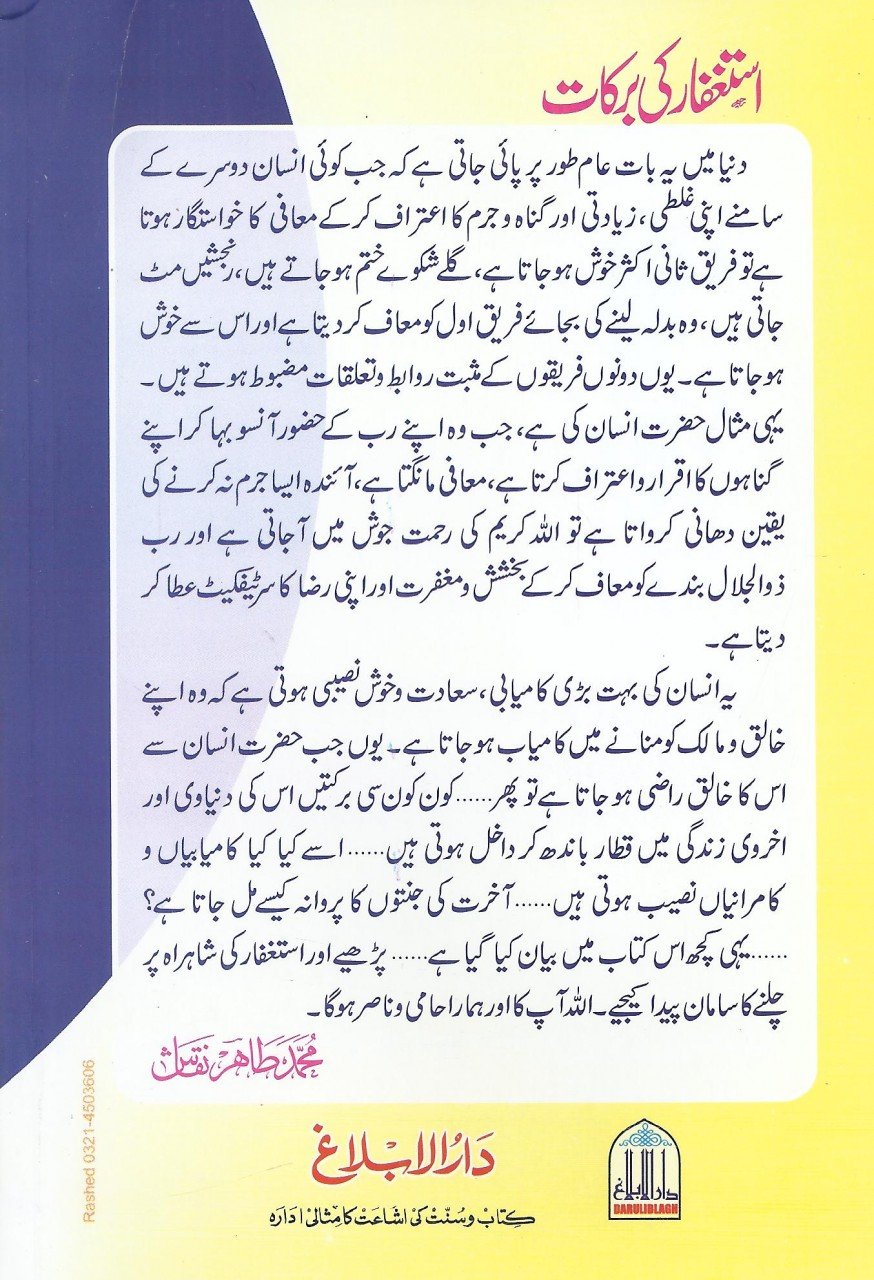 استغفار کی برکات
دنیا میں یہ بات عام طور پر پائی جاتی ہے کہ جب کوئی انسان دوسرے کے
سامنے اپنی غلطی، زیادتی اور گناہ و جرم کا اعتراف کر کے معافی کا خواستگار ہوتا
ہے تو فریق ثانی اکثر خوش ہو جاتا ہے، گلے شکوے ختم ہو جاتے ہیں، رنجشیں مٹ
جاتی ہیں، وہ بدلہ لینے کی بجائے فریق اول کو معاف کر دیتا ہے اور اس سے خوش
ہو جاتا ہے۔ یوں دونوں فریقوں کے مثبت روابط و تعلقات مضبوط ہوتے ہیں۔
یہی مثال حضرت انسان کی ہے، جب وہ اپنے رب کے حضور آنسو بہا کر اپنے
گناہوں کا اقرار و اعتراف کرتا ہے، معافی مانگتا ہے، آئندہ ایسا جرم نہ کرنے کی
یقین دھانی کرواتا ہے تو اللہ کریم کی رحمت جوش میں آجاتی ہے اور رب
ذوالجلال بندے کو معاف کر کے بخشش و مغفرت اور اپنی رضا کا سرٹیفکیٹ عطا کر
دیتا ہے۔
یہ انسان کی بہت بڑی کامیابی، سعادت و خوش نصیبی ہوتی ہے کہ وہ اپنے
خالق و مالک کو منانے میں کامیاب ہو جاتا ہے۔ یوں جب حضرت انسان سے
اس کا خالق راضی ہو جاتا ہے تو پھر...... کون کون سی برکتیں اس کی دنیاوی اور
اخروی زندگی میں قطار باندھ کر داخل ہوتی ہیں...... اسے کیا کیا کامیابیاں و
کامرانیاں نصیب ہوتی ہیں...... آخرت کی جنتوں کا پروانہ کیسے مل جاتا ہے؟
...... یہی کچھ اس کتاب میں بیان کیا گیا ہے...... پڑھیے اور استغفار کی شاہراہ پر
چلنے کا سامان پیدا کیجیے۔ اللہ آپ کا اور ہمارا حامی و ناصر ہوگا۔
محمد طاہر نقاش
دارالابلاغ
کتاب و سنت کی اشاعت کا مثالی ادارہ
دارالابلاغ
DARULIBLAGH
Rashed 0321-4503606